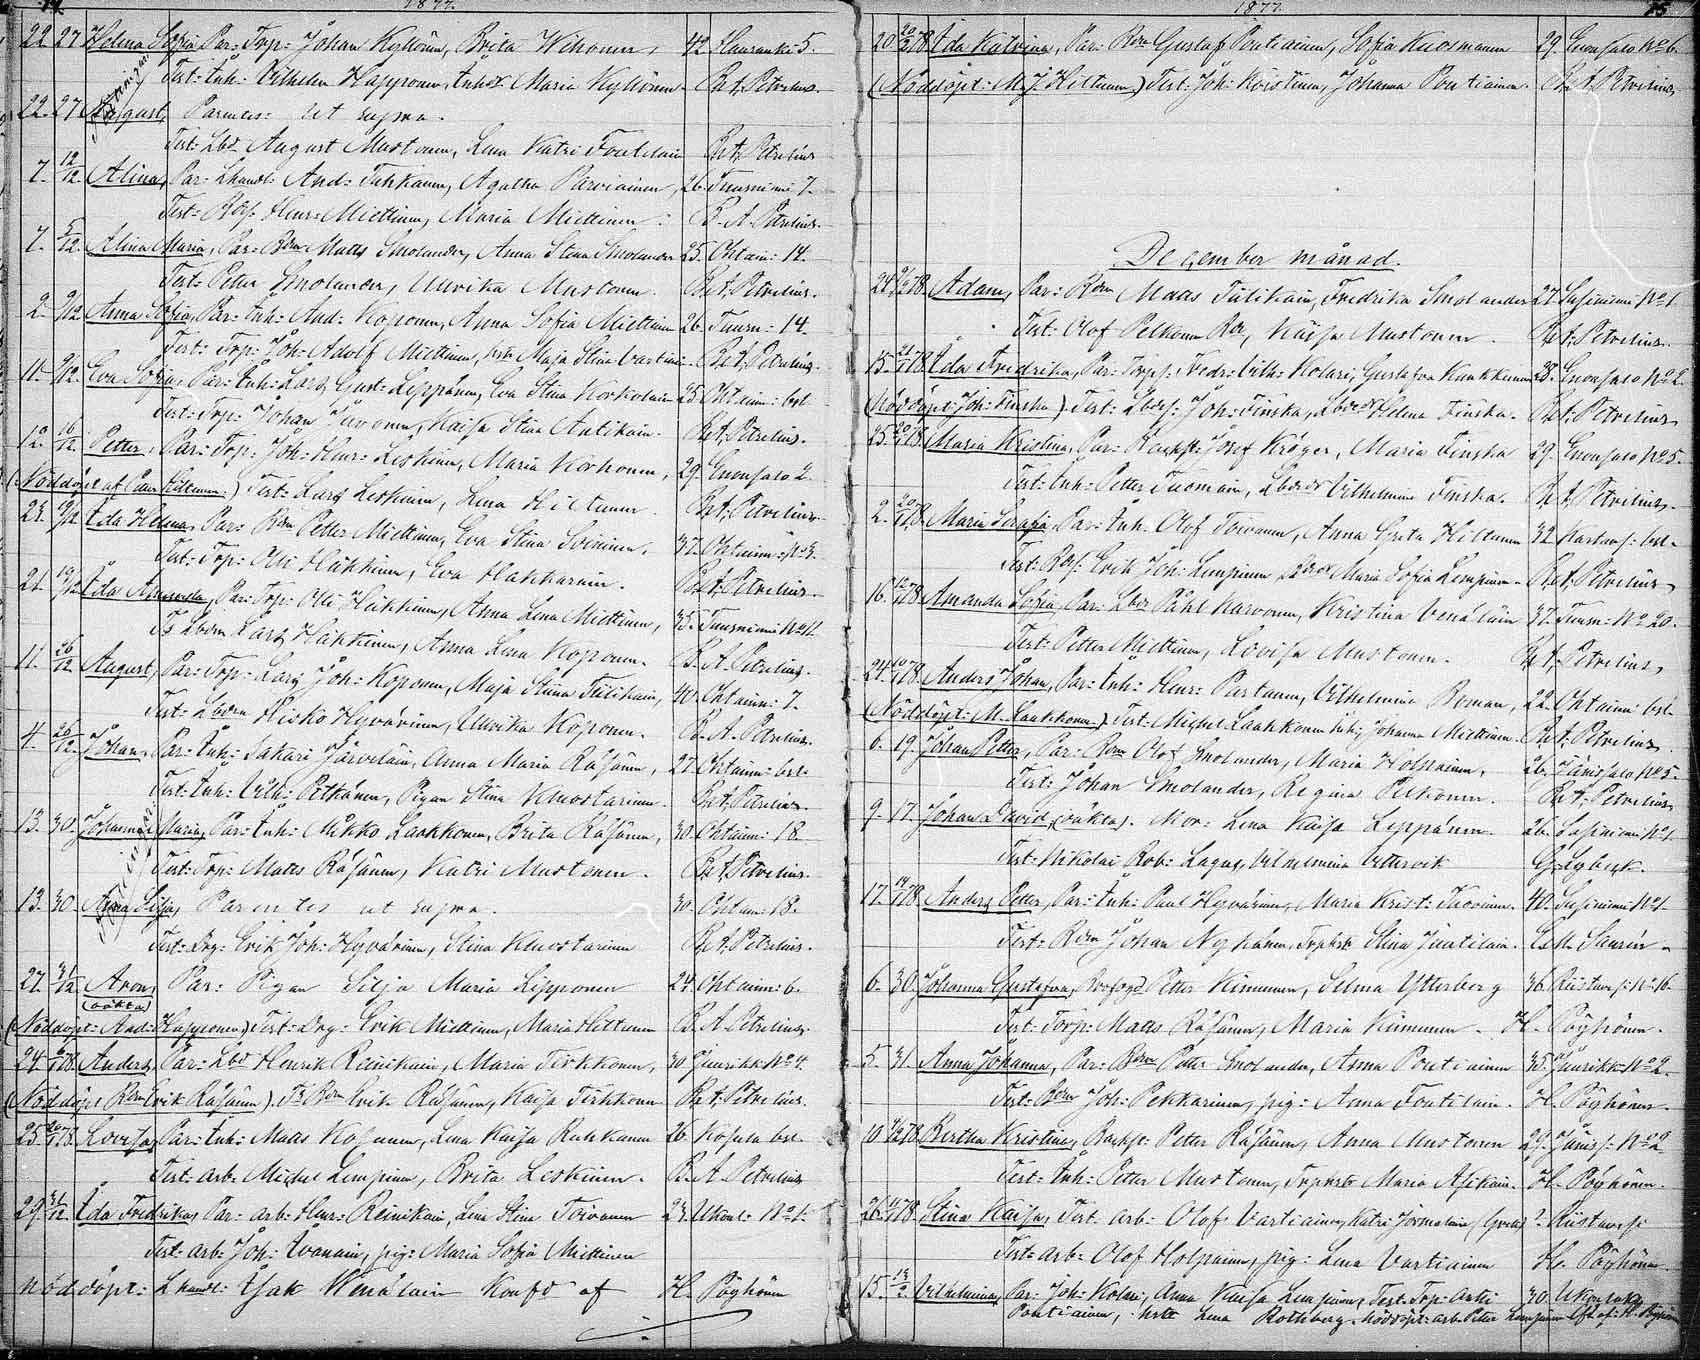 14.
1877.
22 27 Helena Sofia Par: Torp: Johan Kyllönen, Brita Wihonen, 42. Hauranki 5.
Test: Inh: Vilhelm Happonen, Inhdr Maria Kyllönen. B. A. Petrelius.
22. 27 August, Parentes: ut supra.
Test: Lbd. August Mustonen, Lena Katri Foutilain B. A. Petrelius
7. 12/12. Alina, Par: Lhandl: And: Tuhkanen, Agatha Parviainen, 26. Tuusniemi 7.
Test: Rdj. Henr: Miettinen, Maria Miettinen. B. A. Petrelius.
7. 5/12. Alina Maria, Par: Bdn Matts Smolander, Anna Stina Smolander 25. Ohtain: 14.
Test: Petter Smolander, Ulrika Mustonen. B. A. Petrelius.
2. 9/12 Anna Sofia, Par: Inh: And: Koponen, Anna Sofia Miettinen 26. Tuusn: 14.
Test: Torp: Joh: Adolf Miettinen, hstr Maja Stina Vartiain B. A. Petrelius.
11. 9/12. Eva Sofia, Par: Inh: Lars Gust: Leppänen, Eva Stina Korkolain 25. Ohtaim: bsl.
Test: Torp: Johan Juvonen, Kaisa Stina Antikain. B. A. Petrelius.
12. 16/12 Petter, Par: Torp: Joh: Henr: Leskinen, Maria Korhonen, 29. Enonsalo 2.
(Nöddöpt af Hiltunen) Test: Lars Leskinen, Lena Hiltunen. B. A. Petrelius.
Ida Helena, Par: Bdn Petter Miettinen, Eva Stina Soininen, 37. Ohtaim: No 3.
Test: Torp: Olli Häkkinen, Eva Hakkarain. B. A. Petrelius.
21. 19/12 Ida Amanda, Par: Torp: Olli Häkkinen, Anna Lena Miettinen, 35. Tuusniemi No 11.
Ts Lbdn Lars Häkkinen, Anna Lena Koponen. B. A. Petrelius.
11. 26/12 August, Par: Torp: Lars Joh: Koponen, Maja Stina Tiilikain, 40. Ohtaim: 7.
Test: Lbdn Hisko Hyvärinen, Ulrika Koponen. B. A. Petrelius.
4. 26/12. Johan, Par: Inh: Sakari Järveläin, Anna Maria Räsänen, 27. Ohtaim: bsl.
Test: Inh: Vilh: Pitkänen, Pigan Stina Knuutarinen. B. A. Petrelius.
13. 30. Johanna Maria, Par: Inh: Mikko Laakkonen, Brita Räsänen, 30. Ohtaim: 18.
Test: Torp: Matts Räsänen, Katri Mustonen. B. A. Petrelius.
13. 30. Anna Silja, Parentes ut supra. 30. Ohtaim: 18.
Test: Drg: Erik Joh: Hyvärinen, Stina Knuutarinen B. A. Petrelius.
27. 31/12. Aron, Par: Pigan Silja Maria Lipponen 24. Ohtaim: 6.
(oäkta)
(Nöddöpt: And: Happonen) Test: Drg: Erik Miettinen, Maria Hiltunen B. A. Petrelius.
24. Anders, Par: Lbd Henrik Reinikain, Maria Tirkkonen, 30 Juurikka No 4.
(Nöddöpt Bdn Erik Räsänen). Ts Bdn Erik Räsänen, Kaisa Tirkkonen B. A. Petrelius.
25. Lovisa, Par: Inh: Matts Kosunen, Lena Kaisa Ruhkanen 26. Kosula bsl.
Test: Arb: Michel Lempinen, Brita Leskinen. B. A. Petrelius
29. 31/12. Ida Fredrika, Par: Arb: Henr: Reinikain, Lena Stina Toivanen 23. Ukonl: No 1.
Test: Arb: Joh: Ivanain, pig: Maria Sofia Miettinen
nöddöpt: Lhandl: Isak Wenäläin Konfd af H. Pöyhönen

1877.
15.
20. Ida Katrina, Par: Bdn Gustaf Pontiainen, Sofia Kuosmanen 29. Enonsalo No 6.
(Nöddöpt: M. J. Hiltunen) Test: Joh: Ristinen, Johanna Pontiainen. B. A. Petrelius.
December månad.
24. Adam, Par: Bdn Matts Tiilikain, Fredrika Smolander 27. Susiniemi No 1.
Test: Olof Pelkonen Bdr, Kaisa Mustonen. B. A. Petrelius.
15. Ida Fredrika, Par: Torps: Fredr: Vilh: Kolari, Gustafva Kaukkunen 28. Enonsalo No 2.
(Nöddöpt: Joh: Finska) Test: Lbds: Joh: Finska, Lbdr Helena Finska. B. A. Petrelius
25. Maria Kristina, Par: Backst: Josef Kröger, Maria Finska 29. Enonsalo No 5.
Test: Inh: Petter Tuomain, Lbdr Vilhelmina Finska. B. A. Petrelius.
2. Maria Serafia, Par: Inh: Olof Toivanen, Anna Greta Hiltunen 32. bsl.
Test: Bds. Erik Joh: Lempinen, Maria Sofia Lempinen. B. A. Petrelius
16. Amanda Sofia, Par: Lbdr Påhl Karvonen, Kristina Venäläin 37. Tuusn: No 20.
Test: Petter Miettinen, Lovisa Mustonen. B. A. Petrelius,
24. Anders Johan, Par: Inh: Henr: Partanen, Vilhelmina Broman, 22. Ohtaim: bsl.
(Nöddöpt: M. Laakkonen) Test: Michel Laakkonen, Johanna Miettinen. B. A. Petrelius.
6. 19. Johan Petter, Par: Bdn Olof Smolander, Maria Holpainen, 26. Jänissalo No 5.
Test: Johan Smolander, Regina Pelkonen. B. A. Petrelius
9. 17. Johan David, (oäkta). Mor: Lena Kaisa Leppänen. 26. Susiniemi No 1.
Test: Nikolai Rob: Lagus, Vilhelmina Vettervik G: Lybeck.
17. Anders Petter, Par: Inh: Paul Hyvärinen, Maria Krist: Kuovinen. 40. Susiniemi No 1.
Test: Bdn Johan Nykänen, Torphstr Stina Juutilain. C. M. Saurén.
6. 30. Johanna Gustafva, Brofogd Petter Kinnunen, Selma Ytterberg 36. Riistaves: No 16.
Test: Torp: Matts Räsänen, Maria Kinnunen. H. Pöyhönen.
5. 31. Anna Johanna, Par: Bdn Petter Smolander, Anna Pontiainen 35. Juurikka No 2.
Test: Bdn Joh: Pekkarinen, pig: Anna Foutilain. H. Pöyhönen.
10 Bertha Kristina, Backst: Petter Räsänen, Anna Mustonen 29. Jänis: No 2
Test: Inh: Petter Mustonen, Torphstr Maria Asikain. H. Pöyhönen.
26. Stina Kaisa, Test: Arb: Olof Vartiainen, Katri Jormalain ? Riistaves:
Test: Arb: Olof Holpainen, pig: Lena Vartiainen H. Pöyhönen.
15. Vilhelmina, Par: Joh: Kolari, Anna Kaisa Lempinen, Test: Torp: Antti 30.
Pontiainen, hstr Lena Rothberg. Nöddöpt: arb: Petter Lempinen H. Pöyhönen